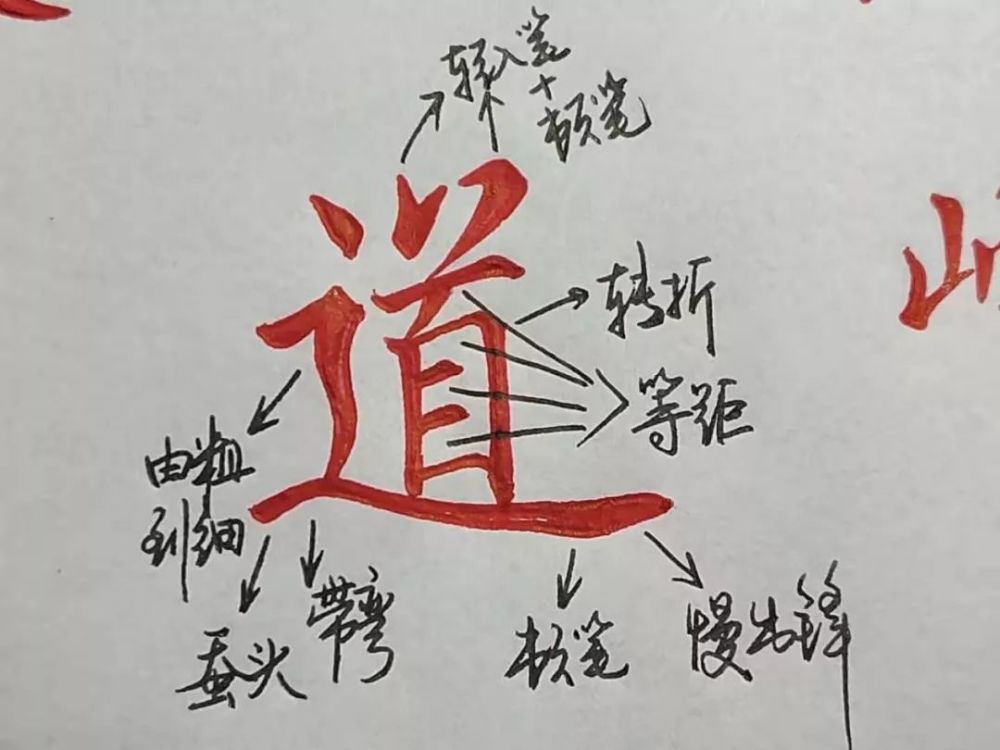 轻入笔
+
顿笔
道
转折
等距
由粗
到细
蚕头
带弯
顿笔
慢出锋